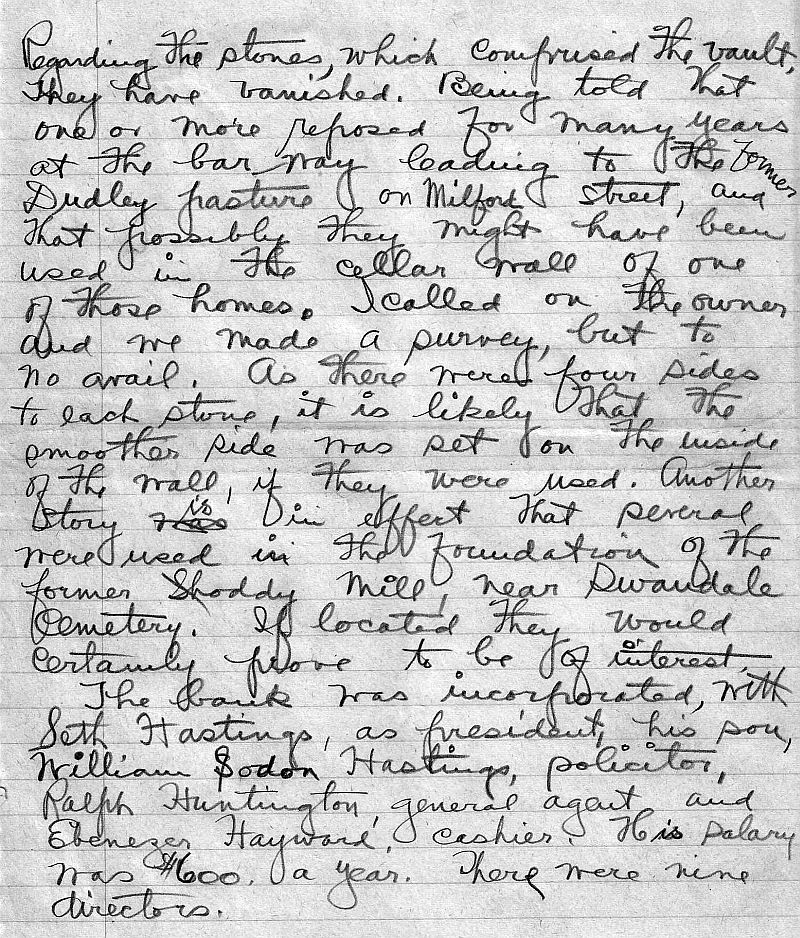 Regarding the stones, which comprised the vault,
they have vanished. Being told that
one or more reposed for many years
at the bar way leading to the former
Dudley pasture on Milford street, and
that possibly they might have been
used in the cellar wall of one
of those homes. I called on the owner
and we made a survey, but to
no avail. As there were four sides
to each stone, it is likely that the
smoother side was set on the inside
of the wall, if they were used. Another
story is in effect that several
were used in the foundation of the
former Shoddy Mill, near Swandale
Cemetery. If located they would
certainly prove to be of interest.
The bank was incorporated, with
Seth Hastings, as president, his son,
William Sodon Hastings, solicitor,
Ralph Huntington, general agent and
Ebenezer Hayward, cashier. His salary
was $600. a year. There were nine
directors.